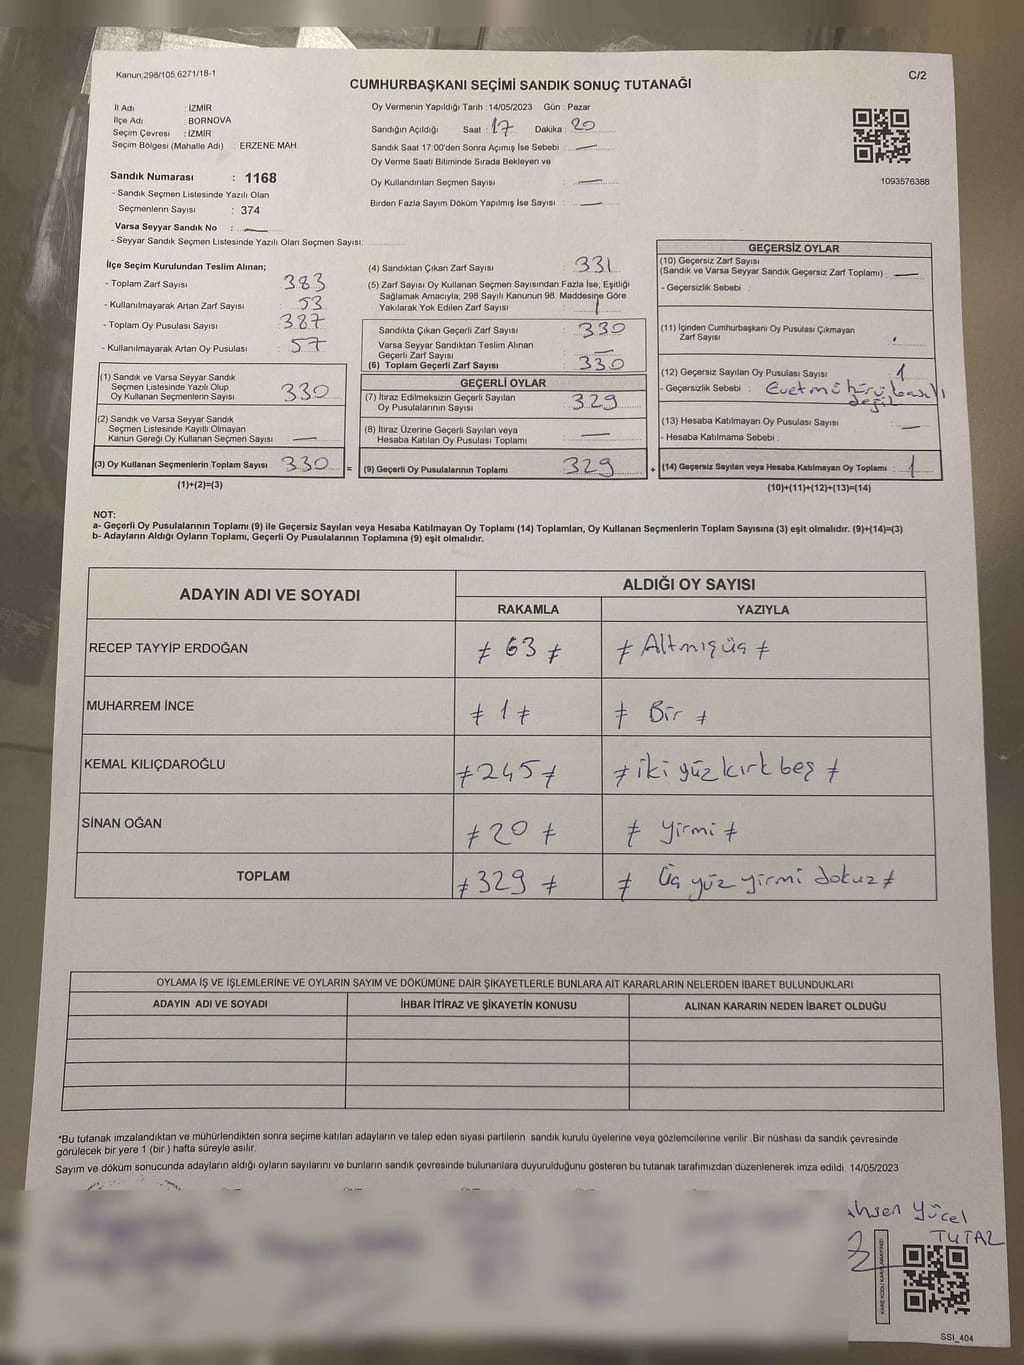 Kanun;298/105,6271/18-1
C/2
CUMHURBAŞKANI SEÇİMİ SANDIK SONUÇ TUTANAĞI
İl Adı : İZMİR
İlçe Adı : BORNOVA
Seçim Çevresi : İZMİR
Seçim Bölgesi (Mahalle Adı) : ERZENE MAH.
Oy Vermenin Yapıldığı Tarih : 14/05/2023 Gün : Pazar
Sandığın Açıldığı Saat : 17 Dakika : 20
Sandık Saat 17:00'den Sonra Açımış İse Sebebi : —
Oy Verme Saati Bitiminde Sırada Bekleyen ve
Oy Kullandırılan Seçmen Sayısı : —
Birden Fazla Sayım Döküm Yapılmış İse Sayısı : —
1093576388
Sandık Numarası : 1168
- Sandık Seçmen Listesinde Yazılı Olan
Seçmenlerin Sayısı : 374
Varsa Seyyar Sandık No : —
- Seyyar Sandık Seçmen Listesinde Yazılı Olan Seçmen Sayısı:
İlçe Seçim Kurulundan Teslim Alınan;
- Toplam Zarf Sayısı : 383
- Kullanılmayarak Artan Zarf Sayısı : 53
- Toplam Oy Pusulası Sayısı : 387
- Kullanılmayarak Artan Oy Pusulası : 57
(1) Sandık ve Varsa Seyyar Sandık
Seçmen Listesinde Yazılı Olup
Oy Kullanan Seçmenlerin Sayısı : 330
(2) Sandık ve Varsa Seyyar Sandık
Seçmen Listesinde Kayıtlı Olmayan
Kanun Gereği Oy Kullanan Seçmen Sayısı : —
(3) Oy Kullanan Seçmenlerin Toplam Sayısı : 330
(1)+(2)=(3)
=
(4) Sandıktan Çıkan Zarf Sayısı : 331
(5) Zarf Sayısı Oy Kullanan Seçmen Sayısından Fazla İse, Eşitliği
Sağlamak Amacıyla; 298 Sayılı Kanunun 98. Maddesine Göre
Yakılarak Yok Edilen Zarf Sayısı : 1
Sandıkta Çıkan Geçerli Zarf Sayısı : 330
Varsa Seyyar Sandıktan Teslim Alınan
Geçerli Zarf Sayısı : —
(6) Toplam Geçerli Zarf Sayısı : 330
GEÇERLİ OYLAR
(7) İtiraz Edilmeksizin Geçerli Sayılan
Oy Pusulasının Sayısı : 329
(8) İtiraz Üzerine Geçerli Sayılan veya
Hesaba Katılan Oy Pusulası Toplamı : —
(9) Geçerli Oy Pusulalarının Toplamı : 329
+
GEÇERSİZ OYLAR
(10) Geçersiz Zarf Sayısı
(Sandık ve Varsa Seyyar Sandık Geçersiz Zarf Toplamı) : —
- Geçersizlik Sebebi :
(11) İçinden Cumhurbaşkanı Oy Pusulası Çıkmayan
Zarf Sayısı :
(12) Geçersiz Sayılan Oy Pusulası Sayısı : 1
- Geçersizlik Sebebi : Evet mühürü basılı
değil
(13) Hesaba Katılmayan Oy Pusulası Sayısı : —
- Hesaba Katılmama Sebebi :
(14) Geçersiz Sayılan veya Hesaba Katılmayan Oy Toplamı : 1
(10)+(11)+(12)+(13)=(14)
NOT:
a- Geçerli Oy Pusulalarının Toplamı (9) ile Geçersiz Sayılan veya Hesaba Katılmayan Oy Toplamı (14) Toplamları, Oy Kullanan Seçmenlerin Toplam Sayısına (3) eşit olmalıdır. (9)+(14)=(3)
b- Adayların Aldığı Oyların Toplamı, Geçerli Oy Pusulalarının Toplamına (9) eşit olmalıdır.
ADAYIN ADI VE SOYADI
ALDIĞI OY SAYISI
RAKAMLA YAZIYLA
RECEP TAYYİP ERDOĞAN ≠ 63 ≠ ≠ Altmışüç ≠
MUHARREM İNCE ≠ 1 ≠ ≠ Bir ≠
KEMAL KILIÇDAROĞLU ≠ 245 ≠ ≠ iki yüz kırk beş ≠
SİNAN OĞAN ≠ 20 ≠ ≠ yirmi ≠
TOPLAM ≠ 329 ≠ ≠ Üç yüz yirmi dokuz ≠
OYLAMA İŞ VE İŞLEMLERİNE VE OYLARIN SAYIM VE DÖKÜMÜNE DAİR ŞİKAYETLERLE BUNLARA AİT KARARLARIN NELERDEN İBARET BULUNDUKLARI
ADAYIN ADI VE SOYADI İHBAR İTİRAZ VE ŞİKAYETİN KONUSU ALINAN KARARIN NEDEN İBARET OLDUĞU
*Bu tutanak imzalandıktan ve mühürlendikten sonra seçime katılan adayların ve talep eden siyasi partilerin sandık kurulu üyelerine veya gözlemcilerine verilir .Bir nüshası da sandık çevresinde
görülecek bir yere 1 (bir ) hafta süreyle asılır.
Sayım ve döküm sonucunda adayların aldığı oyların sayılarını ve bunların sandık çevresinde bulunanlara duyurulduğunu gösteren bu tutanak tarafımızdan düzenlenerek imza edildi. 14/05/2023
Ahsen Yücel
TUTAL
SSİ_404